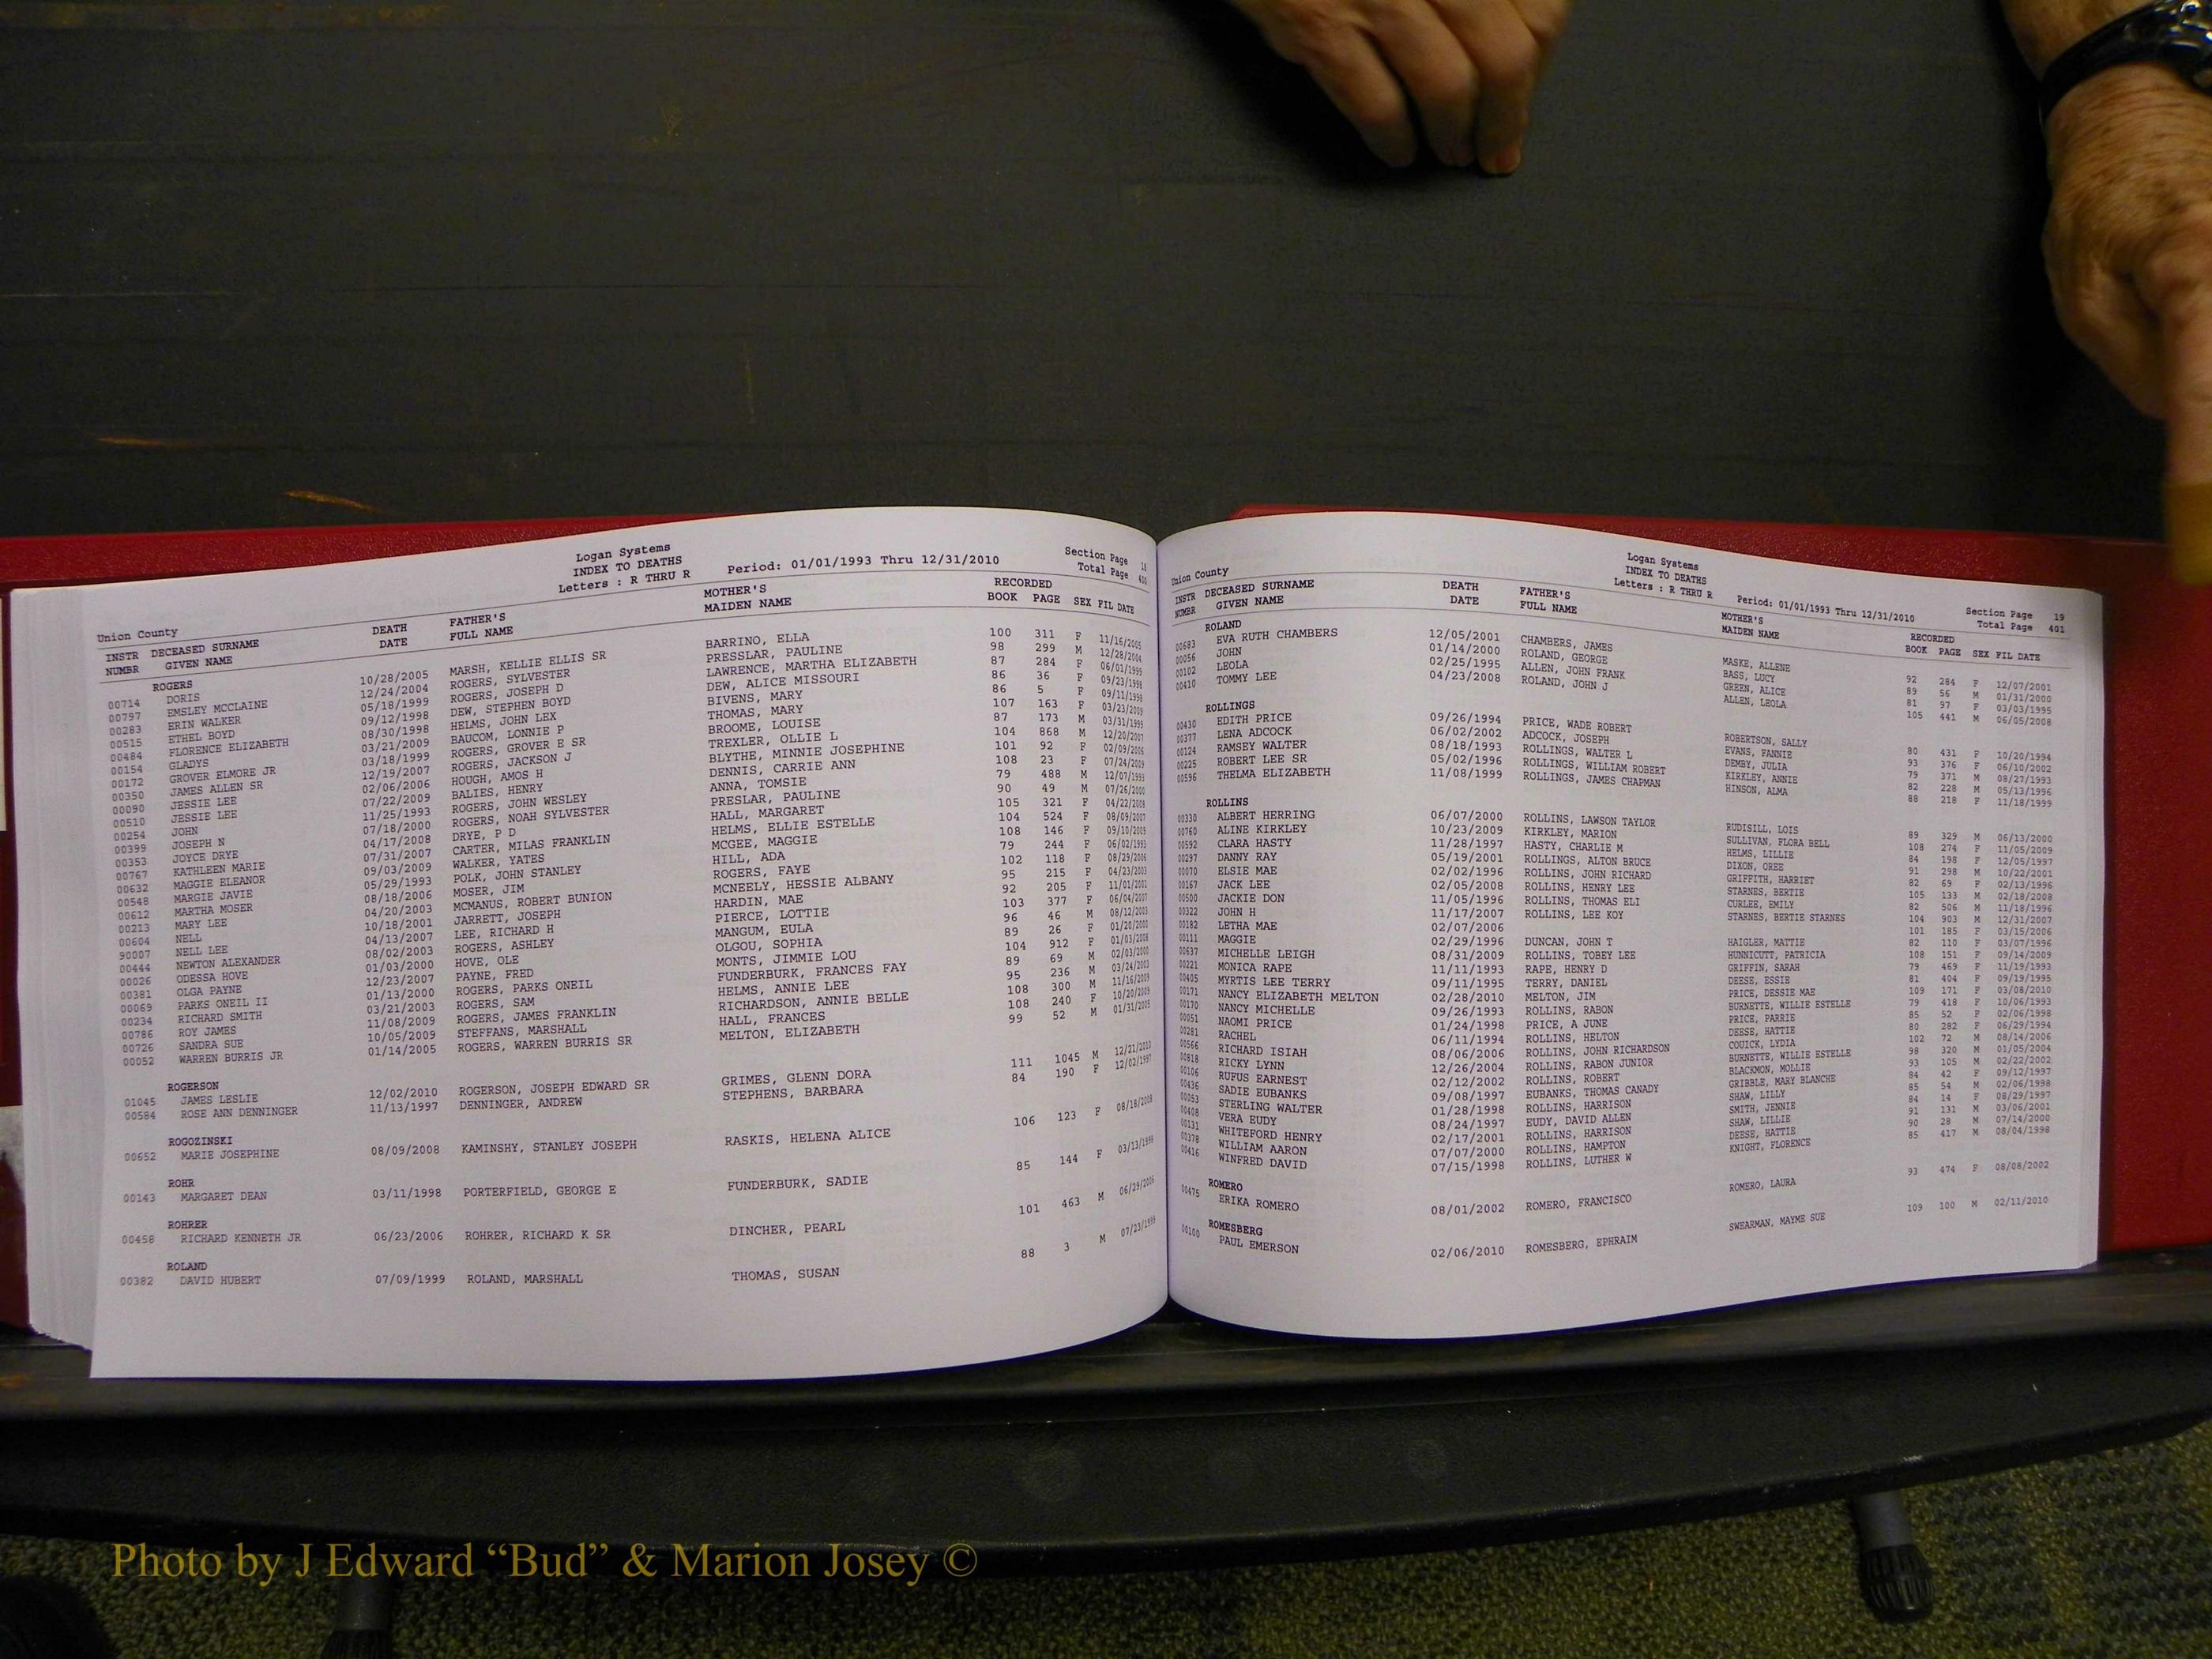 Logan Systems
INDEX TO DEATHS
Letters : R THRU R Period: 01/01/1993 Thru 12/31/2010
Section Page 18
Total Page 400
Union County
INSTR DECEASED SURNAME DEATH FATHER'S MOTHER'S RECORDED
NUMBR GIVEN NAME DATE FULL NAME MAIDEN NAME BOOK PAGE SEX FIL DATE
ROGERS
00714 DORIS 10/28/2005 MARSH, KELLIE ELLIS SR BARRINO, ELLA 100 311 F 11/16/2005
00797 EMSLEY MCCLAINE 12/24/2004 ROGERS, SYLVESTER PRESSLAR, PAULINE 98 299 M 12/28/2004
00283 ERIN WALKER 05/18/1999 ROGERS, JOSEPH D LAWRENCE, MARTHA ELIZABETH 87 284 F 06/01/1999
00515 ETHEL BOYD 09/12/1998 DEW, STEPHEN BOYD DEW, ALICE MISSOURI 86 36 F 09/23/1998
00484 FLORENCE ELIZABETH 08/30/1998 HELMS, JOHN LEX BIVENS, MARY 86 5 F 09/11/1998
00154 GLADYS 03/21/2009 BAUCOM, LONNIE P THOMAS, MARY 107 163 F 03/23/2009
00172 GROVER ELMORE JR 03/18/1999 ROGERS, GROVER E SR BROOME, LOUISE 87 173 M 03/31/1999
00350 JAMES ALLEN SR 12/19/2007 ROGERS, JACKSON J TREXLER, OLLIE L 104 868 M 12/20/2007
00090 JESSIE LEE 02/06/2006 HOUGH, AMOS H BLYTHE, MINNIE JOSEPHINE 101 92 F 02/09/2006
00510 JESSIE LEE 07/22/2009 BALIES, HENRY DENNIS, CARRIE ANN 108 23 F 07/24/2009
00254 JOHN 11/25/1993 ROGERS, JOHN WESLEY ANNA, TOMSIE 79 488 M 12/07/1993
00399 JOSEPH N 07/18/2000 ROGERS, NOAH SYLVESTER PRESLAR, PAULINE 90 49 M 07/26/2000
00353 JOYCE DRYE 04/17/2008 DRYE, P D HALL, MARGARET 105 321 F 04/22/2008
00767 KATHLEEN MARIE 07/31/2007 CARTER, MILAS FRANKLIN HELMS, ELLIE ESTELLE 104 524 F 08/09/2007
00632 MAGGIE ELEANOR 09/03/2009 WALKER, YATES MCGEE, MAGGIE 108 146 F 09/10/2009
00548 MARGIE JAVIE 05/29/1993 POLK, JOHN STANLEY HILL, ADA 79 244 F 06/02/1993
00612 MARTHA MOSER 08/18/2006 MOSER, JIM ROGERS, FAYE 102 118 F 08/29/2006
00213 MARY LEE 04/20/2003 MCMANUS, ROBERT BUNION MCNEELY, HESSIE ALBANY 95 215 F 04/23/2003
00604 NELL 10/18/2001 JARRETT, JOSEPH HARDIN, MAE 92 205 F 11/01/2001
90007 NELL LEE 04/13/2007 LEE, RICHARD H PIERCE, LOTTIE 103 377 F 06/04/2007
00444 NEWTON ALEXANDER 08/02/2003 ROGERS, ASHLEY MANGUM, EULA 96 46 M 08/12/2003
00026 ODESSA HOVE 01/03/2000 HOVE, OLE OLGOU, SOPHIA 89 26 F 01/20/2000
00381 OLGA PAYNE 12/23/2007 PAYNE, FRED MONTS, JIMMIE LOU 104 912 F 01/03/2008
00069 PARKS ONEIL II 01/13/2000 ROGERS, PARKS ONEIL FUNDERBURK, FRANCES FAY 89 69 M 02/03/2000
00234 RICHARD SMITH 03/21/2003 ROGERS, SAM HELMS, ANNIE LEE 95 236 M 03/24/2003
00786 ROY JAMES 11/08/2009 ROGERS, JAMES FRANKLIN RICHARDSON, ANNIE BELLE 108 300 M 11/16/2009
00726 SANDRA SUE 10/05/2009 STEFFANS, MARSHALL HALL, FRANCES 108 240 F 10/20/2009
00052 WARREN BURRIS JR 01/14/2005 ROGERS, WARREN BURRIS SR MELTON, ELIZABETH 99 52 M 01/31/2005
ROGERSON
01045 JAMES LESLIE 12/02/2010 ROGERSON, JOSEPH EDWARD SR GRIMES, GLENN DORA 111 1045 M 12/21/2010
00584 ROSE ANN DENNINGER 11/13/1997 DENNINGER, ANDREW STEPHENS, BARBARA 84 190 F 12/02/1997
ROGOZINSKI
00652 MARIE JOSEPHINE 08/09/2008 KAMINSHY, STANLEY JOSEPH RASKIS, HELENA ALICE 106 123 F 08/18/2008
ROHR
00143 MARGARET DEAN 03/11/1998 PORTERFIELD, GEORGE E FUNDERBURK, SADIE 85 144 F 03/13/1998
ROHRER
00458 RICHARD KENNETH JR 06/23/2006 ROHRER, RICHARD K SR DINCHER, PEARL 101 463 M 06/29/2006
ROLAND
00382 DAVID HUBERT 07/09/1999 ROLAND, MARSHALL THOMAS, SUSAN 88 3 M 07/23/1999
Logan Systems
INDEX TO DEATHS
Letters : R THRU R Period: 01/01/1993 Thru 12/31/2010
Section Page 19
Total Page 401
Union County
INSTR DECEASED SURNAME DEATH FATHER'S MOTHER'S RECORDED
NUMBR GIVEN NAME DATE FULL NAME MAIDEN NAME BOOK PAGE SEX FIL DATE
ROLAND
00683 EVA RUTH CHAMBERS 12/05/2001 CHAMBERS, JAMES MASKE, ALLENE 92 284 F 12/07/2001
00056 JOHN 01/14/2000 ROLAND, GEORGE BASS, LUCY 89 56 M 01/31/2000
00102 LEOLA 02/25/1995 ALLEN, JOHN FRANK GREEN, ALICE 81 97 F 03/03/1995
00410 TOMMY LEE 04/23/2008 ROLAND, JOHN J ALLEN, LEOLA 105 441 M 06/05/2008
ROLLINGS
00430 EDITH PRICE 09/26/1994 PRICE, WADE ROBERT ROBERTSON, SALLY 80 431 F 10/20/1994
00377 LENA ADCOCK 06/02/2002 ADCOCK, JOSEPH EVANS, FANNIE 93 376 F 06/10/2002
00124 RAMSEY WALTER 08/18/1993 ROLLINGS, WALTER L DEMBY, JULIA 79 371 M 08/27/1993
00225 ROBERT LEE SR 05/02/1996 ROLLINGS, WILLIAM ROBERT KIRKLEY, ANNIE 82 228 M 05/13/1996
00596 THELMA ELIZABETH 11/08/1999 ROLLINGS, JAMES CHAPMAN HINSON, ALMA 88 218 F 11/18/1999
ROLLINS
00330 ALBERT HERRING 06/07/2000 ROLLINS, LAWSON TAYLOR RUDISILL, LOIS 89 329 M 06/13/2000
00760 ALINE KIRKLEY 10/23/2009 KIRKLEY, MARION SULLIVAN, FLORA BELL 108 274 F 11/05/2009
00592 CLARA HASTY 11/28/1997 HASTY, CHARLIE M HELMS, LILLIE 84 198 F 12/05/1997
00297 DANNY RAY 05/19/2001 ROLLINGS, ALTON BRUCE DIXON, OREE 91 298 M 10/22/2001
00070 ELSIE MAE 02/02/1996 ROLLINS, JOHN RICHARD GRIFFITH, HARRIET 82 69 F 02/13/1996
00167 JACK LEE 02/05/2008 ROLLINS, HENRY LEE STARNES, BERTIE 105 133 M 02/18/2008
00500 JACKIE DON 11/05/1996 ROLLINS, THOMAS ELI CURLEE, EMILY 82 506 M 11/18/1996
00322 JOHN H 11/17/2007 ROLLINS, LEE KOY STARNES, BERTIE STARNES 104 903 M 12/31/2007
00182 LETHA MAE 02/07/2006 101 185 F 03/15/2006
00111 MAGGIE 02/29/1996 DUNCAN, JOHN T HAIGLER, MATTIE 82 110 F 03/07/1996
00637 MICHELLE LEIGH 08/31/2009 ROLLINS, TOBEY LEE HUNNICUTT, PATRICIA 108 151 F 09/14/2009
00221 MONICA RAPE 11/11/1993 RAPE, HENRY D GRIFFIN, SARAH 79 469 F 11/19/1993
00405 MYRTIS LEE TERRY 09/11/1995 TERRY, DANIEL DEESE, ESSIE 81 404 F 09/19/1995
00171 NANCY ELIZABETH MELTON 02/28/2010 MELTON, JIM PRICE, DESSIE MAE 109 171 F 03/08/2010
00170 NANCY MICHELLE 09/26/1993 ROLLINS, RABON BURNETTE, WILLIE ESTELLE 79 418 F 10/06/1993
00051 NAOMI PRICE 01/24/1998 PRICE, A JUNE PRICE, PARRIE 85 52 F 02/06/1998
00281 RACHEL 06/11/1994 ROLLINS, HELTON DEESE, HATTIE 80 282 F 06/29/1994
00566 RICHARD ISIAH 08/06/2006 ROLLINS, JOHN RICHARDSON COUICK, LYDIA 102 72 M 08/14/2006
00818 RICKY LYNN 12/26/2004 ROLLINS, RABON JUNIOR BURNETTE, WILLIE ESTELLE 98 320 M 01/05/2004
00106 RUFUS EARNEST 02/12/2002 ROLLINS, ROBERT BLACKMON, MOLLIE 93 105 M 02/22/2002
00436 SADIE EUBANKS 09/08/1997 EUBANKS, THOMAS CANADY GRIBBLE, MARY BLANCHE 84 42 F 09/12/1997
00053 STERLING WALTER 01/28/1998 ROLLINS, HARRISON SHAW, LILLY 85 54 M 02/06/1998
00408 VERA EUDY 08/24/1997 EUDY, DAVID ALLEN SMITH, JENNIE 84 14 F 08/29/1997
00131 WHITEFORD HENRY 02/17/2001 ROLLINS, HARRISON SHAW, LILLIE 91 131 M 03/06/2001
00378 WILLIAM AARON 07/07/2000 ROLLINS, HAMPTON DEESE, HATTIE 90 28 M 07/14/2000
00416 WINFRED DAVID 07/15/1998 ROLLINS, LUTHER W KNIGHT, FLORENCE 85 417 M 08/04/1998
ROMERO
00475 ERIKA ROMERO 08/01/2002 ROMERO, FRANCISCO ROMERO, LAURA 93 474 F 08/08/2002
ROMESBERG
00100 PAUL EMERSON 02/06/2010 ROMESBERG, EPHRAIM SWEARMAN, MAYME SUE 109 100 M 02/11/2010
Photo by J Edward “Bud” & Marion Josey ©